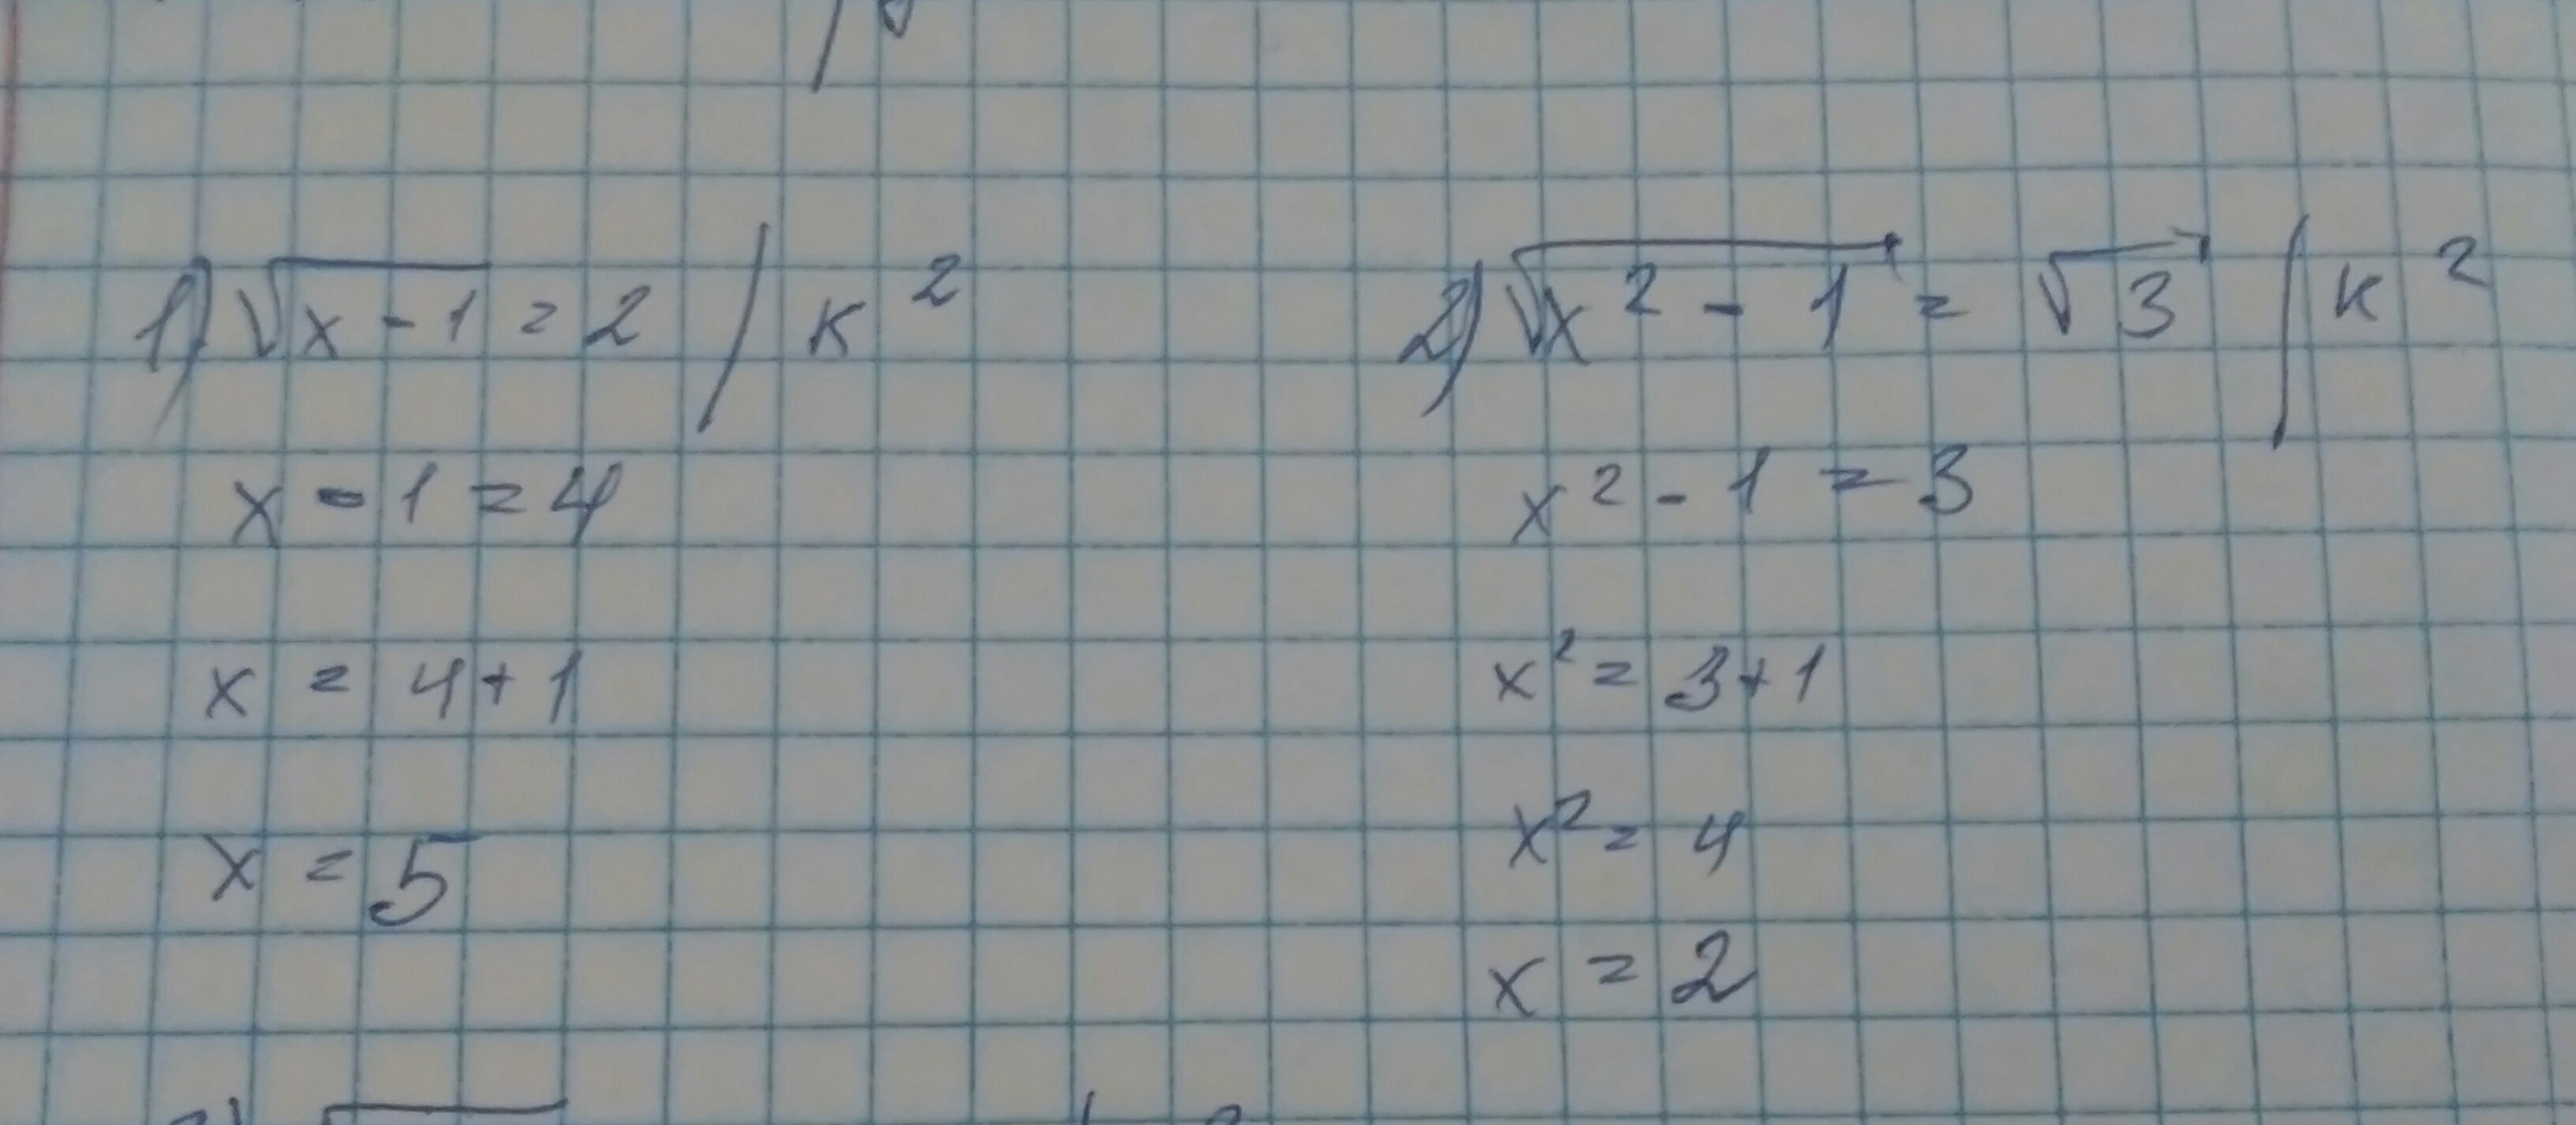 1) √(x - 1) = 2 / к²
x - 1 = 4
x = 4 + 1
x = 5
2) √(x² - 1) = √3 / к²
x² - 1 = 3
x² = 3 + 1
x² = 4
x = 2